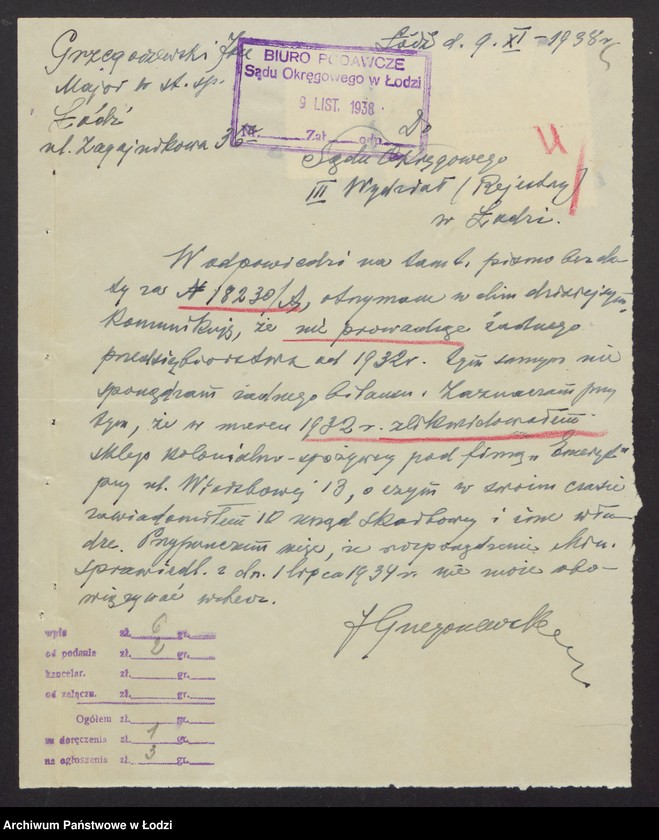 Grzegorzewski Józef
Łódź d. 9. XI - 1938 r.
Major w st. sp.
Łódź
ul. Zagajnikowa 36
BIURO PODAWCZE
Sądu Okręgowego w Łodzi
9 LIST. 1938
Nr. Zał. odp.
Do
Sądu Okręgowego
III Wydział (Rejestry)
w Łodzi.
W odpowiedzi na tamt. pismo bez da-
ty za № 18230/A, otrzymane w dniu dzisiejszym
komunikuję, że nie prowadzę żadnego
przedsiębiorstwa od 1932 r. tym samym nie
sporządzam żadnego bilansu. Zaznaczam przy
tym, że w marcu 1932 r. zlikwidowałem
sklep kolonialno-spożywczy pod firmą „Emeryt"
przy ul. Wierzbowej 18, o czym w swoim czasie
zawiadomiłem 10 urząd skarbowy i inne wła-
dze. Przypuszczam więc, że rozporządzenie Min.
sprawiedl. z dn. 1 lipca 1934 r. nie może obo-
wiązywać wstecz.
J Grzegorzewski
wpis zł. 6 gr.
od podania zł. 2 gr.
kancelar. zł. gr.
od załączn. zł. gr.
Ogółem zł. gr.
za doręczenia zł. 1 gr.
na ogłoszenia zł. 3 gr.
Archiwum Państwowe w Łodzi